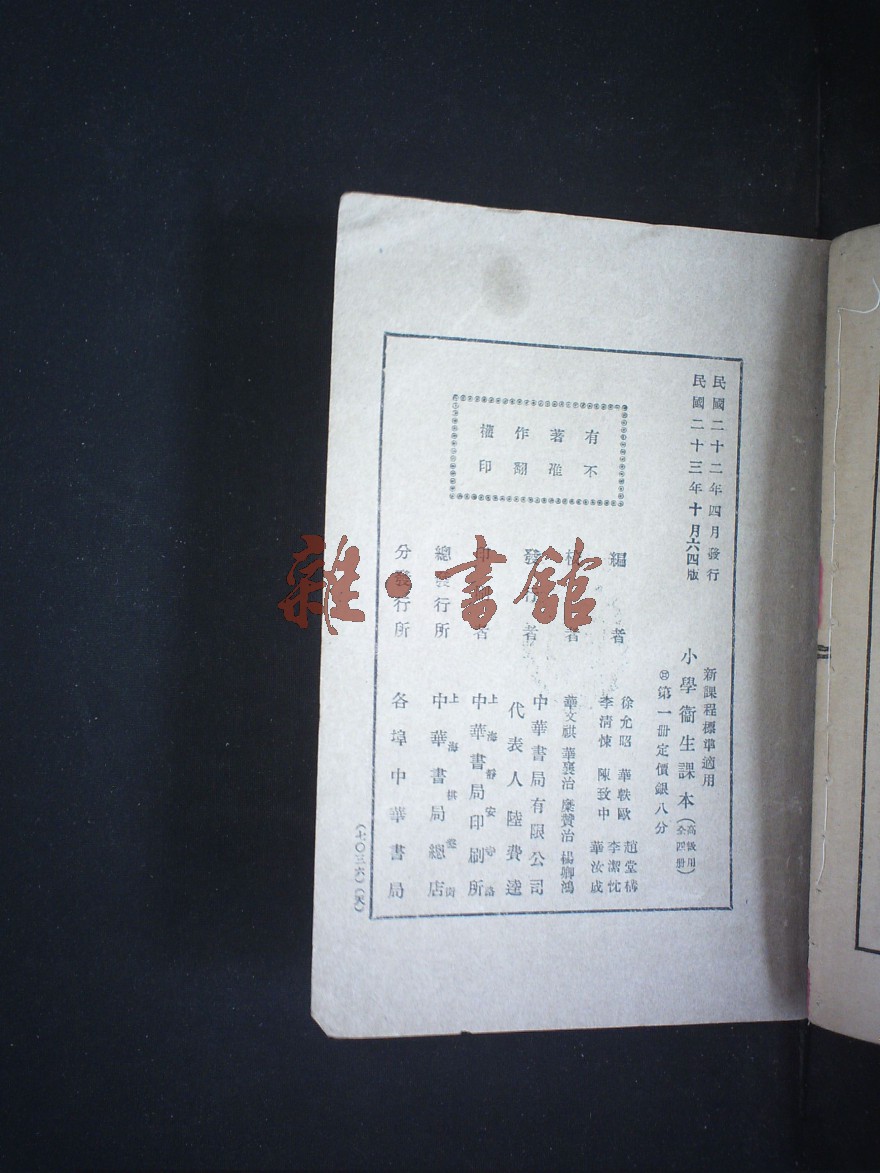 民國二十二年四月發行
民國二十三年十月六四版
新課程標準適用
小學衞生課本(高級用全四册)
第一册定價銀八分
有著作權
不准翻印
編者
徐允昭 華軼歐 趙堂構
李清悚 陳致中 李潔忱 華汝成
校者
華文祺 華襄治 糜贊治 楊卿鴻
發行者
中華書局有限公司
代表人陸費逵
印者
上海靜安寺路
中華書局印刷所
總發行所
上海棋盤街
中華書局總店
分發行所
各埠中華書局
(七〇三六)(天)
雜·書館